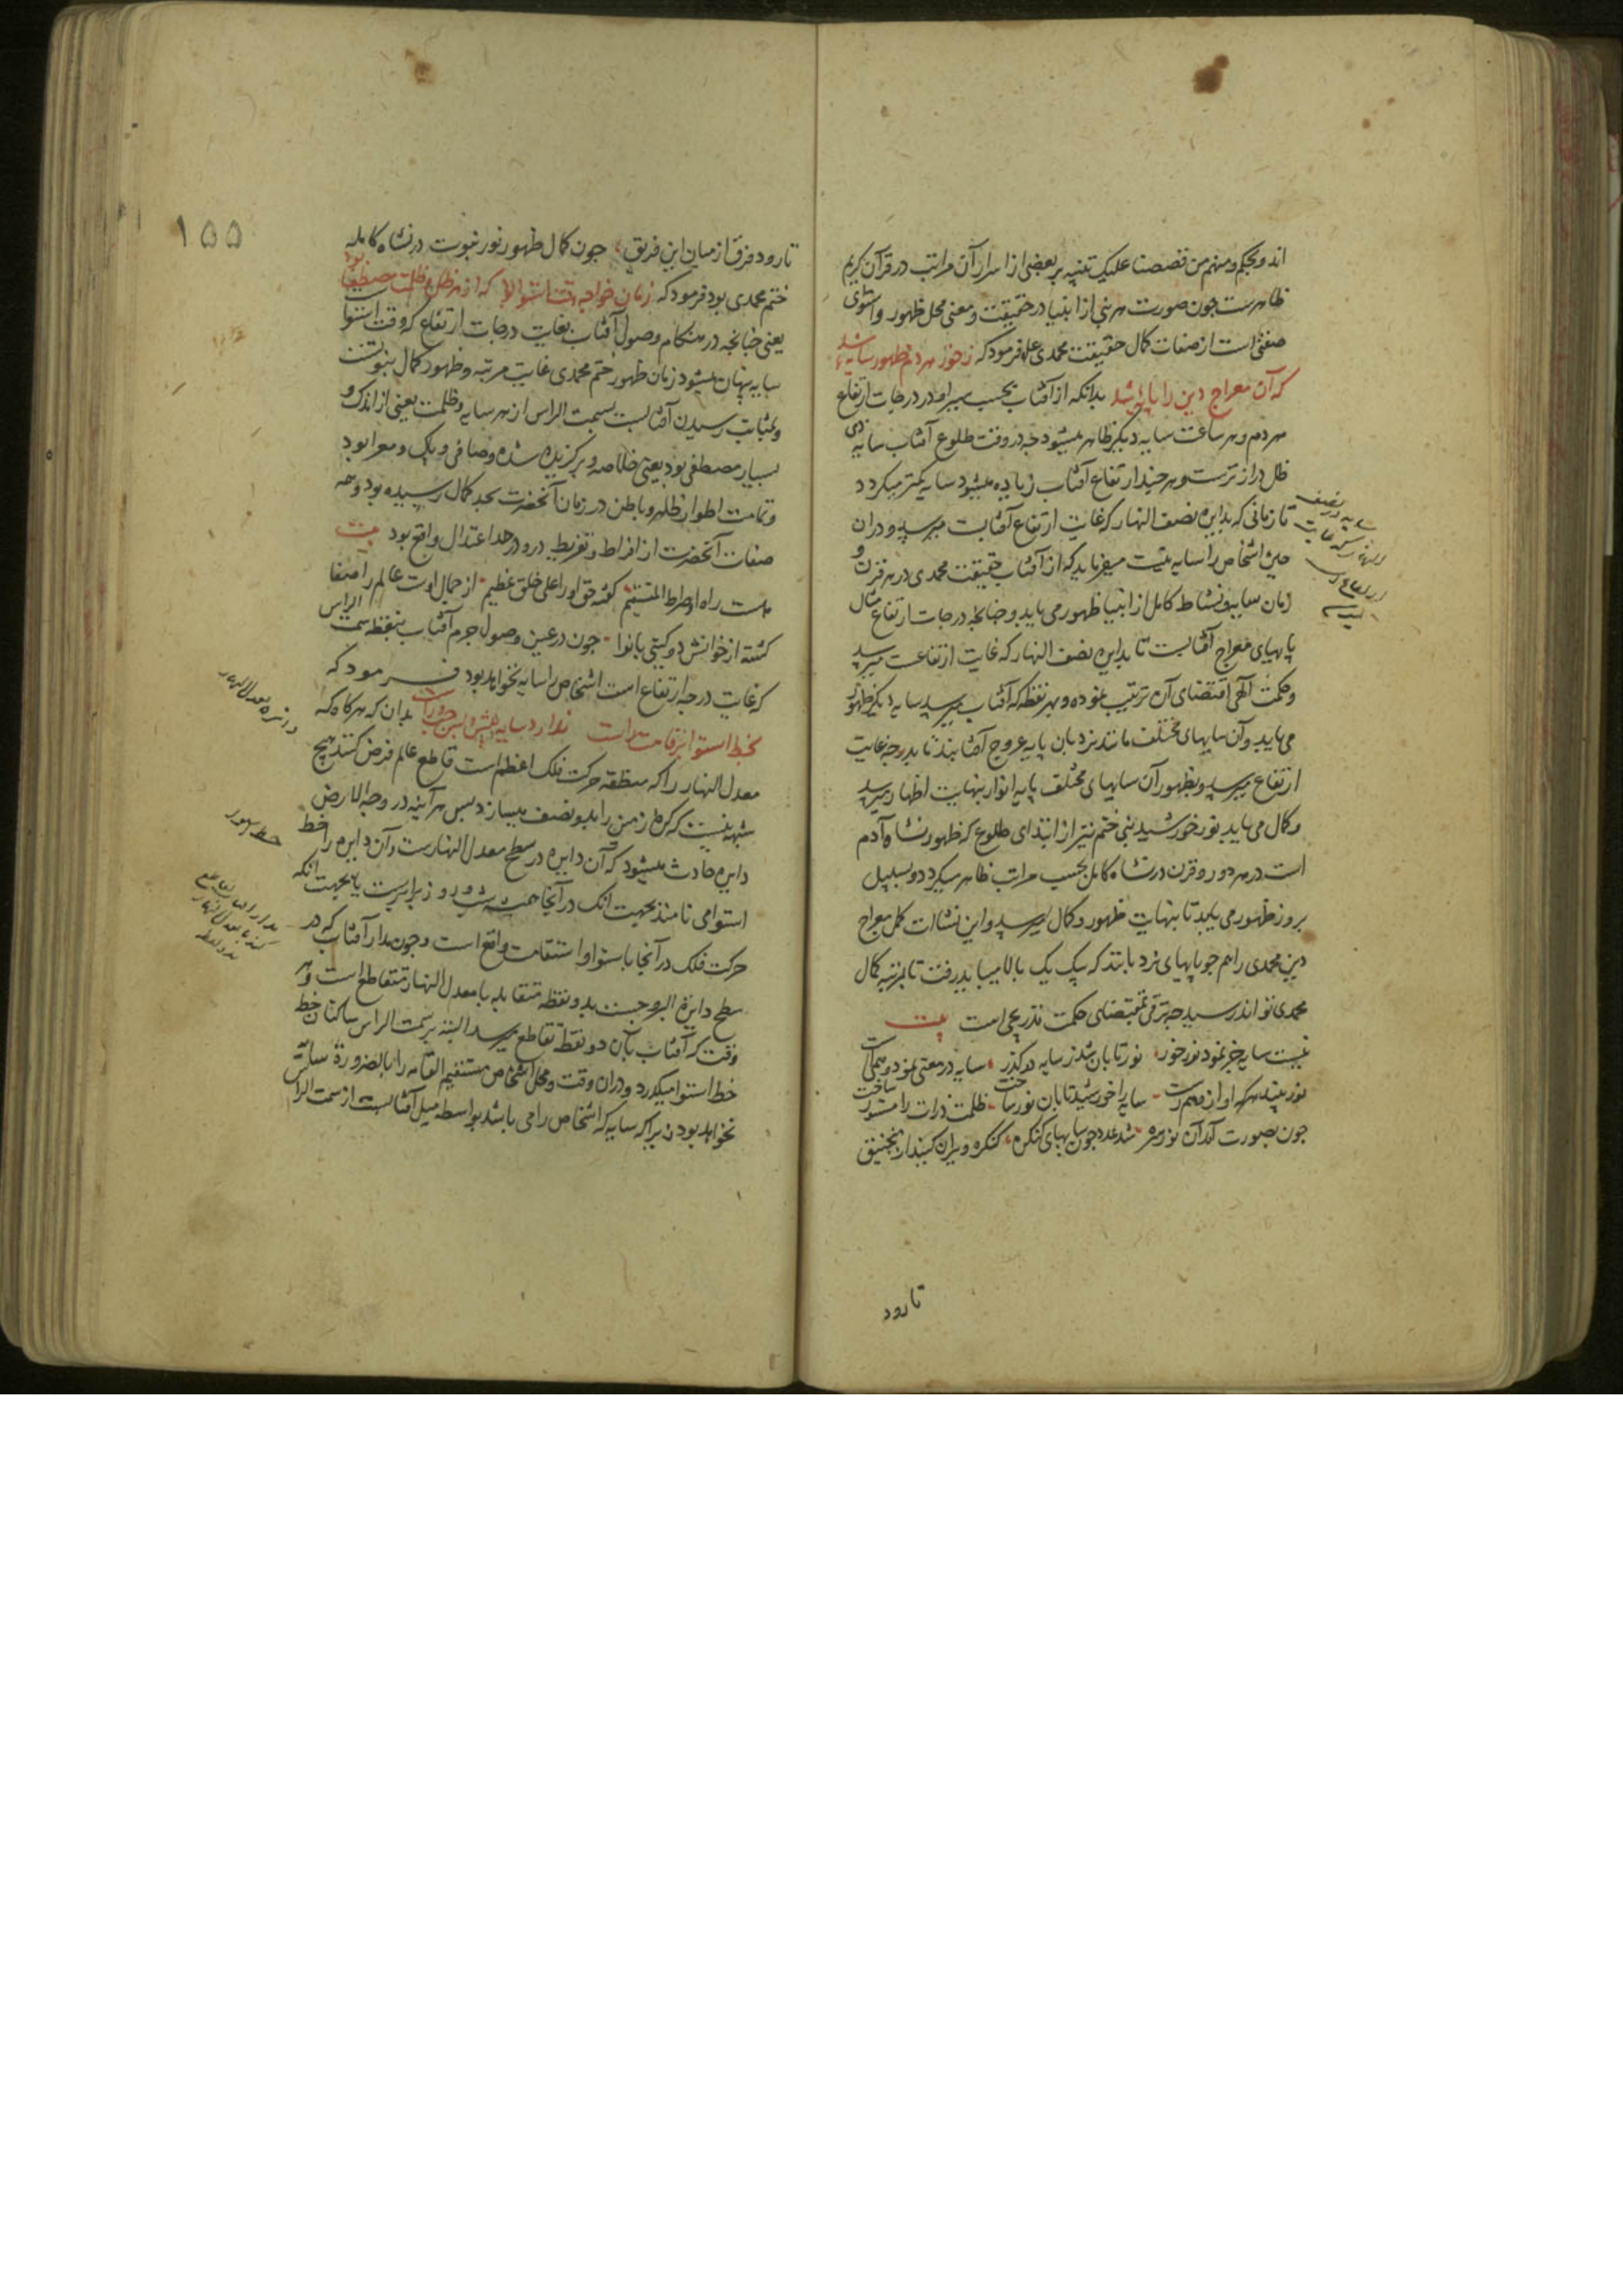 اند و بحکم و منهم من قصصنا علیک تنبیه بر بعضی از اسرار آن مراتب در قرآن کریم
ظاهرست چون صورت هر نبی از انبیا در حقیقت و معنی محل ظهور و استوای
صفتی است از صفات کمال حقیقت محمدی علم فرمود که ز خور هر دم ظهور سایه شد
که آن معراج دین را پایه شد بدانکه از آفتاب بحسب سیر او در درجات ارتفاع
هر دم و هر ساعت سایه دیگر ظاهر میشود چه در وقت طلوع آفتاب سایه
ظل دراز ترست و هر چند ارتفاع آفتاب زیاده میشود سایه کمتر میکردد
تا زمانی که بدایره نصف النهار که غایت ارتفاع آفتابست میرسد و در آن
حین اشخاص را سایه نیست میفرماید که از آفتاب حقیقت محمدی در هر قرن و
زمان سایه و نشاط کامل از انبیا ظهور می یابد و چنانچه درجات ارتفاع مثال
پایهای معراج آفتابست تا بدایره نصف النهار که غایت ارتفاعست میرسد
و حکمت الهی اقتضای آن ترتیب نموده و بهر نقطه که آفتاب میرسد سایه دیگر ظهور
می یابد و آن سایهای مختلف مانند نردبان پایه عروج آفتابند تا بدرجه غایت
ارتفاع میرسد و بظهور آن سایهای مختلف پایه انوار بنهایت اظهار میرسد
و کمال می یابد نور خورشید نبی ختم نیز از ابتدای طلوع که ظهور نشاه آدم
است در هر دور و قرن در نشاه کامل بحسب مراتب ظاهر میکردد و بسبیل
بروز ظهور می یابد تا بنهایت ظهور و کمال میرسد و این نشاات کمل معراج
دین محمدی را هم چو پایهای نردبانند که یک یک بالا میباید رفت تا بمرتبه کمال
محمدی تواند رسید چه ترقی بمقتضای حکمت تدریجی است بیت
نیست سایه جز نمود نور خور نور تابان شد ز سایه در کذر سایه در معنی نمود
نور بیند هر که او از سایه را خورشید تابان نور ساخت ظلمت ذرات را مستور ساخت
چون بصورت آمد آن نور سره شد عدد چون سایهای کنکره کنکره ویران کنید از منجنیق
تا رود
تا رود فرق از میان این فریق چون کمال ظهور نور نبوت در نشاه کامله
ختم محمدی بود فرمود که زمان خواجه وقت استوا بود که از هر ظل و ظلمت مصطفا بود
یعنی چنانچه در هنکام وصول آفتاب بغایت درجات ارتفاع که وقت استوا
سایه پنهان میشود زمان ظهور ختم محمدی غایت مرتبه و ظهور کمال نبوتست
و بمثابت رسیدن آفتابست بسمت الراس از هر سایه و ظلمت یعنی از اندک و
بسیار مصطفی بود یعنی خلاصه و برکزیده شده و صافی و پاک و معرا بود
و تمامت اطوار ظاهر و باطن در زمان آنحضرت بحد کمال رسیده بود و همه
صفات آنحضرت از افراط و تفریط دور و در حد اعتدال واقع بود بیت
هست راه او صراط المستقیم کفته حق او را علی خلق عظیم از جمال اوست عالم را صفا
کشته از خوانش دو کیتی با نوا چون در عین وصول جرم آفتاب بنقطه سمت الراس
که غایت درجه ارتفاع است اشخاص را سایه نخواهد بود فرمود که
بخط استوا بر قامت راست ندارد سایه پیش و پس چپ و راست بدان که هرکاه که
معدل النهار را که منطقه حرکت فلک اعظم است قاطع عالم فرض کنند هیچ
شبهه نیست که کره زمین را بدو نصف میسازد پس هر آینه در وجه الارض
دایره حادث میشود که آن دایره در سطح معدل النهارست و آن دایره را خط
استوا می نامند بجهت آنک در آنجا همیشه شب و روز برابرست یا بجهت آنکه
حرکت فلک در آنجا باستوا و استقامت واقع است و چون مدار آفتاب که در
سطح دایرة البروجست بدو نقطه متقابله با معدل النهار متقاطع است و هر
وقت که آفتاب بآن دو نقطه تقاطع میرسد البته بر سمت الراس ساکنان خط
خط استوا میکذرد و در آن وقت و محل اشخاص مستقیم القامه را بالضرورة سایه
نخواهد بود زیرا که سایه که اشخاص را می باشد بواسطه میل آفتابست از سمت الراس
دایره معدل النهار
۱۵۵